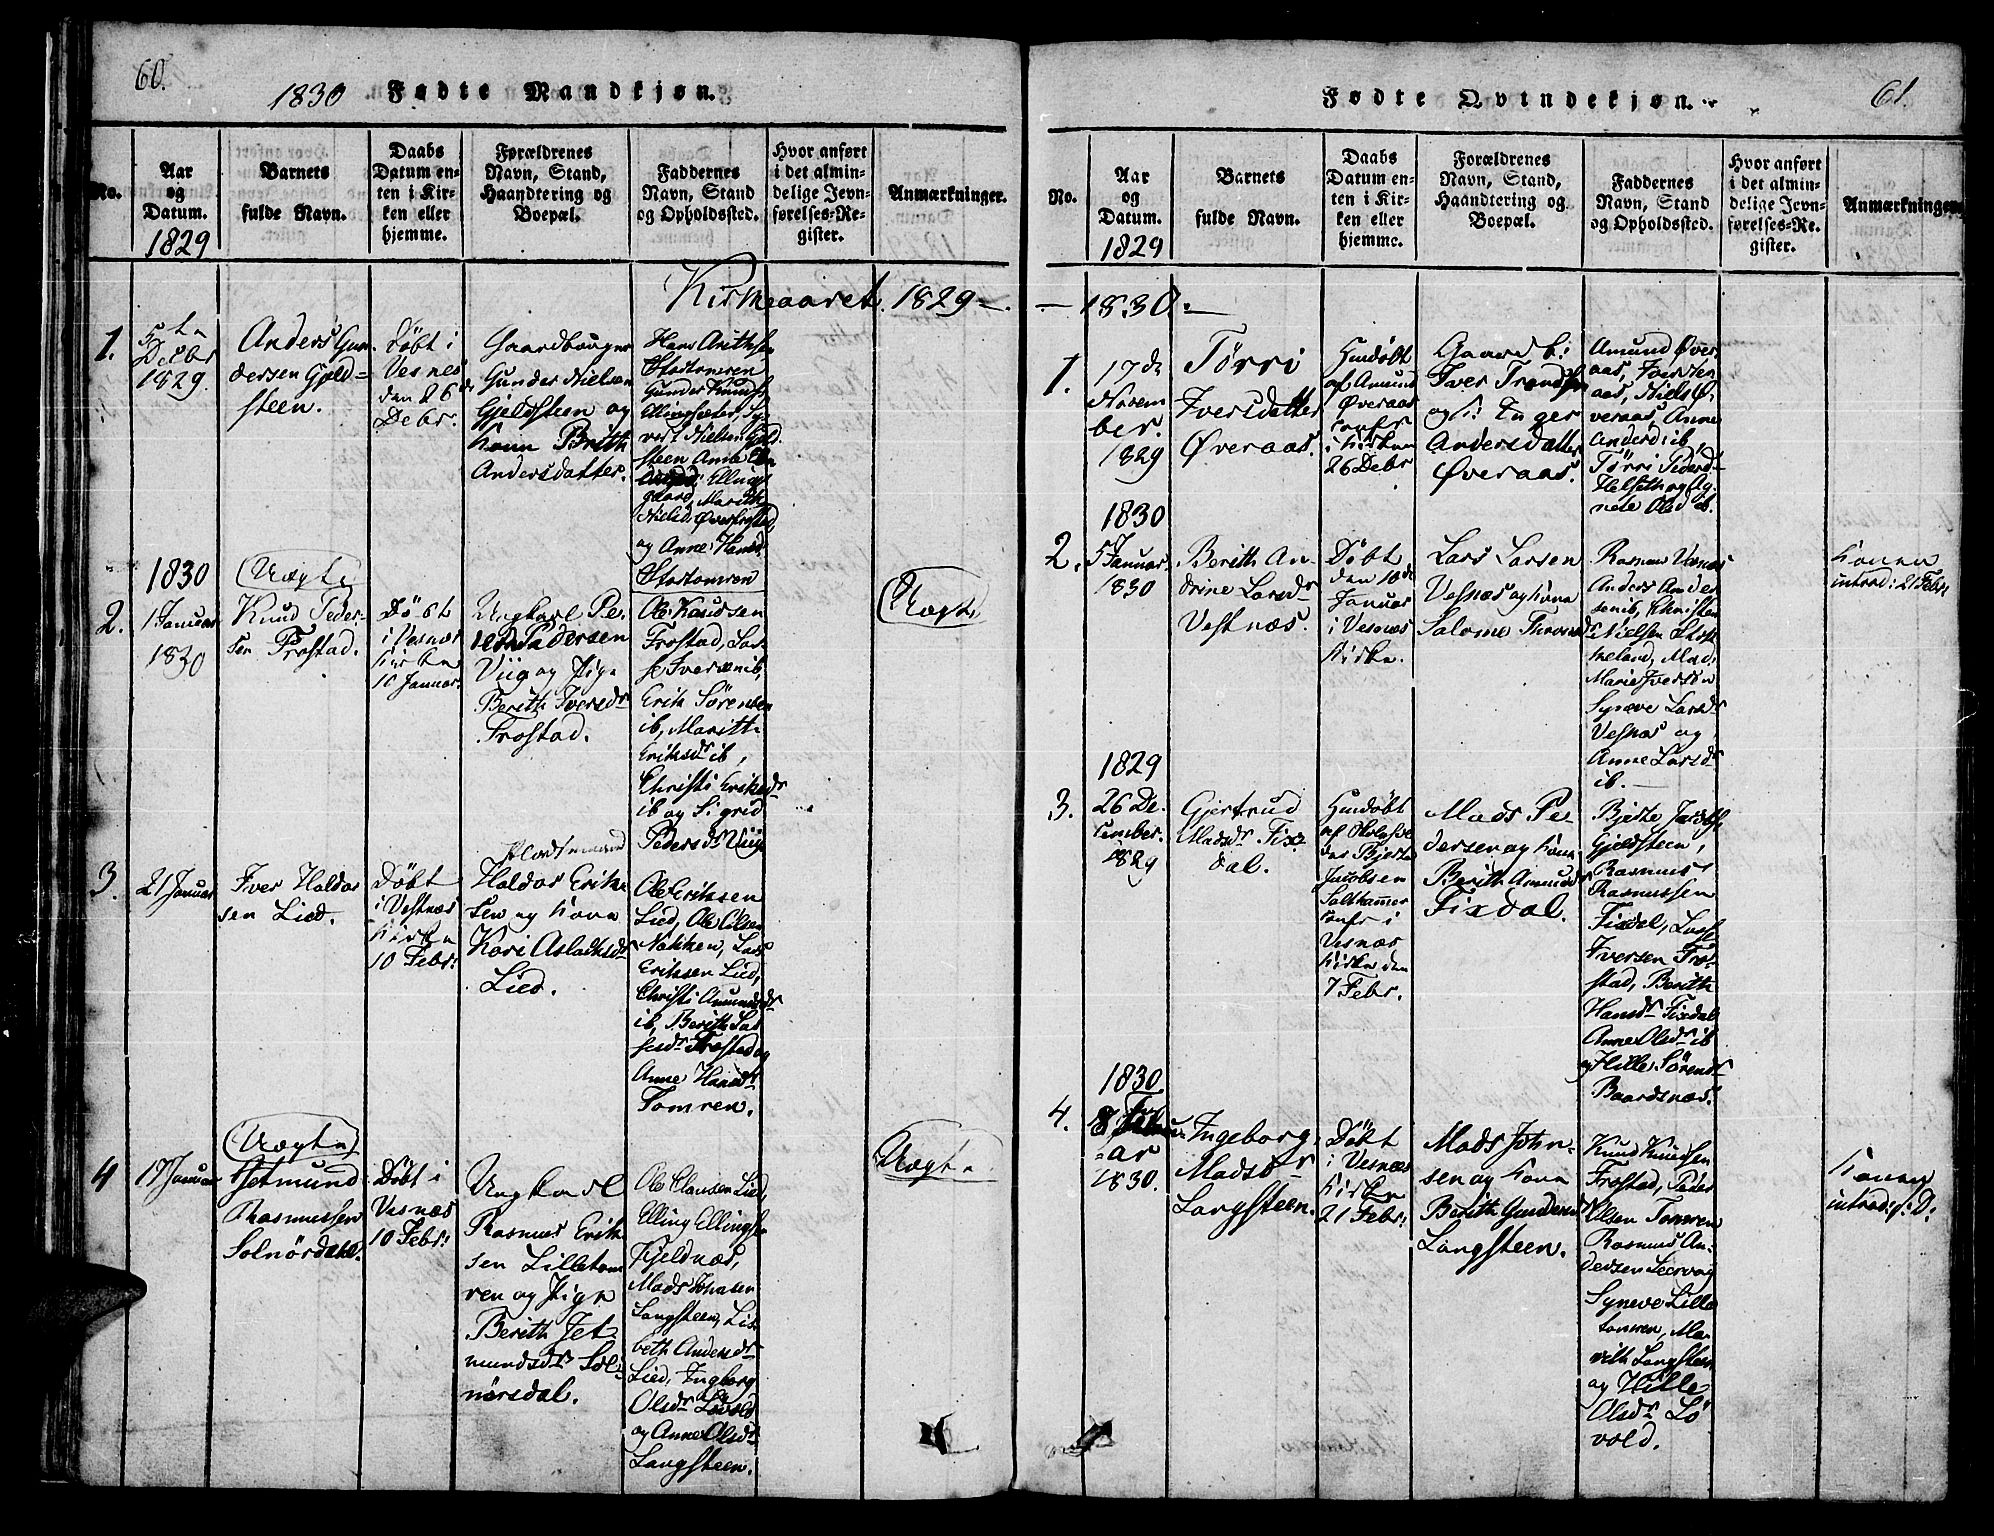 60.
1830 Fødte Mandkjøn.
No.
Aar
og
Datum.
1829
Barnets
fulde Navn.
Daabs
Datum en-
ten i Kir-
ken eller
hjemme.
Forældrenes
Navn, Stand,
Haandtering og
Boepæl.
Faddernes
Navn, Stand
og Opholdssted.
Hvor anført
i det almin-
delige Jevn-
førelses-Re-
gister.
Anmærkninger.
Kirkeaaret 1829-
1.
5te
Decbr
1829.
Anders Gun-
dersen Gjeld-
steen.
Døbt i
Vesnæs
den 26de
Debr.
Gaardbruger
Gunder Nielsen
Gjeldsteen og
Kone Brith
Andersdatter.
Stortomren
Gunder Knuds
Ellingsæter, Sy-
vert Nielsen Gjeld-
steen Anne
Ellings-
gaard, Marith
Nielsd. Øverfrostad,
og Anne Hansd.
Stortomren
1830
2.
1 Januar
1830
Uægte
Knud Peder-
sen Frostad.
Døbt
i Vesnæs
Kirke
10 Januar.
Ungkarl Pe-
der Pedersen
Viig og Pige
Berith Iversdr
Frostad.
Ole Knudsen
Frostad, Las-
se Iversen ib,
Erik Sørensen
ib, Marith
Eriksdr ib,
Christi Eriksdr
ib og Sigrid
Pedersdr Viig
Uægte
3.
21 Januar
Iver Haldor
sen Lied.
Døbt
i Vestnæs
Kirke
10 Febr:
Pladsmand
Haldor Erik-
sen og Kone
Kari Aslaksdr
Lied.
Ole Eriksen
Lied, Ole Olsen
Nakken, Lars
Eriksen Lied,
Christi Amundsdr
ib, Berith Las-
sesdr Frostad og
Anne Hansdr
Tomren.
4
17 Januar
Uægte
Jetmund
Rasmussen
Solnørdahl.
Døbt i
Vesnæs
10 Febr:
Ungkarl
Rasmus Erik-
sen Lilletom-
ren og Pige
Berith Jet-
mundsdr Sol-
nørsdal.
Ole Clausen Lied,
Elling Ellingsen
Kjeldnæs,
Mads Johnsen
Langsteen, Lis-
beth Andersdr
Lied, Ingborg
Olsdr Løvold
og Anne Olsdr
Langsteen.
Uægte
Fødte Qvindekjøn.
61.
No.
Aar
og
Datum.
1829
Barnets
fulde Navn.
Daabs
Datum en-
ten i Kir-
ken eller
hjemme.
Forældrenes
Navn, Stand,
Haandtering og
Boepæl.
Faddernes
Navn, Stand
og Opholdssted.
Hvor anført
i det almin-
delige Jevn-
førelses-Re-
gister.
Anmærkninger.
- 1830 -
1.
17de
Novem
ber.
1829
Tørri
Iversdatter
Øveraas.
Hiemdøbt
af Amund
Øveraas
Confr
i Kirken
26 Debr
Gaardb:
Iver Trondsen
og K: Inger
Andersdatter
Øveraas.
Amund Øver-
aas, Iver
aas, Niels Ø-
veraas, Anne
Andersd: ib
Tørri Pedersdr
Helseth og Ag-
nete Olsd ib.
1830
2.
5 Januar
1830
Berith An-
drine Larsdr
Vestnæs.
Døbt
den 10de
Januar
i Vesnæs
Kirke.
Lars Larsen
Vesnæs og Kone
Salome Thronsdr
Rasmus Vesnæs
Anders Ander
sen ib, Christen
Nielsen
Mad:
Marie Iversen
Syneve Larsdr
Vesnæs og
Anne Larsdr
ib.
Konen
introd: 21 Febr:
1829
3.
26 De-
cember.
1829
Gjertrud
Madsdr Fix-
dal.
Hiemdøbt
af
Bjerte
Jacobsen
Saltkammer
Confr i
Vesnæs
Kirke den
7 Febr.
Mads Pe-
dersen og Kone
Berith Amundsdr
Fixdal.
Bjerte
Gjeldsteen,
Rasmus
Rasmussen
Fixdal, Lasse
Iversen Fro-
stad, Berith
Hansdr Fixdal
Anne Olsdr ib
og Hille Sørensdr
Baardsnæs.
1830
4.
Febru-
ar
1830.
Ingeborg
Madsdr
Langsteen.
Døbt
i Vesnæs
Kirke
21 Febr:
Mads John-
sen og Kone
Berith Gundersdr
Langsteen.
Knud Knudsen
Frostad, Peder
Olsen Tomren
Rasmus An-
dersen Leervaag
Syneve Lille-
tomren, Ma-
rith Langsteen
og Hille
Olsdr Lø-
vold.
Konen
introd: s: D: